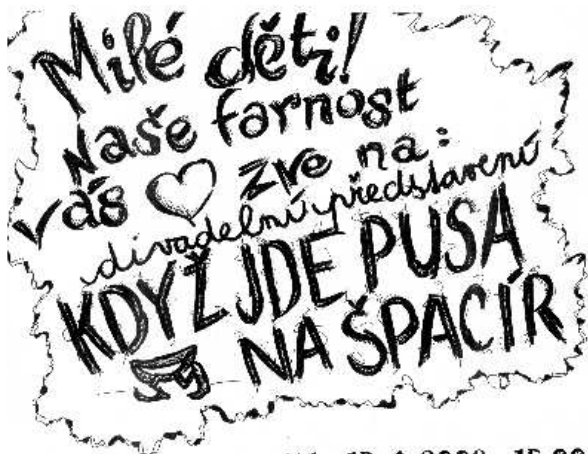 Milé děti!
Naše farnost
Vás zve na:
divadelní představení
KDYŽ JDE PUSA
NA ŠPACÍR